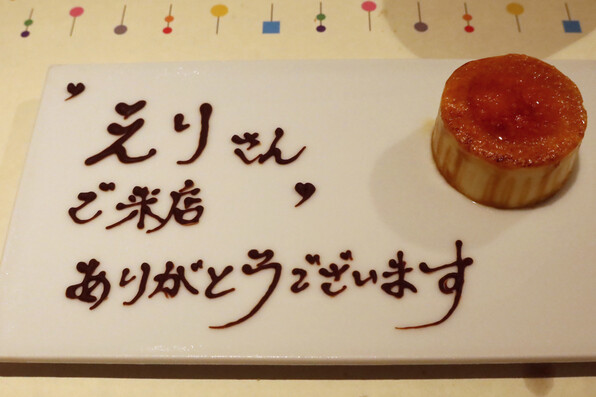 えりさん
ご来店
ありがとうございます